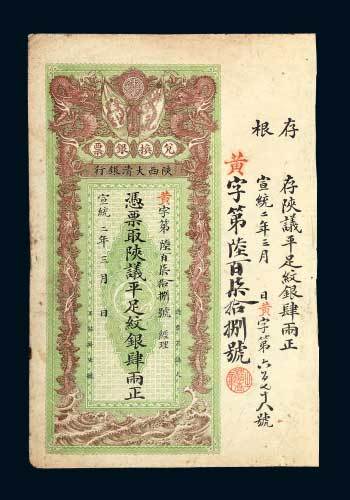 存根
存陝議平足紋銀肆兩正
宣統二年三月 日黃字第六百七十八號
黃字第陸百柒拾捌號
兌換銀票
陝西大清銀行
黃字第陸百柒拾捌號 經理
憑票取陝議平足紋銀肆兩正
宣統二年三月 日